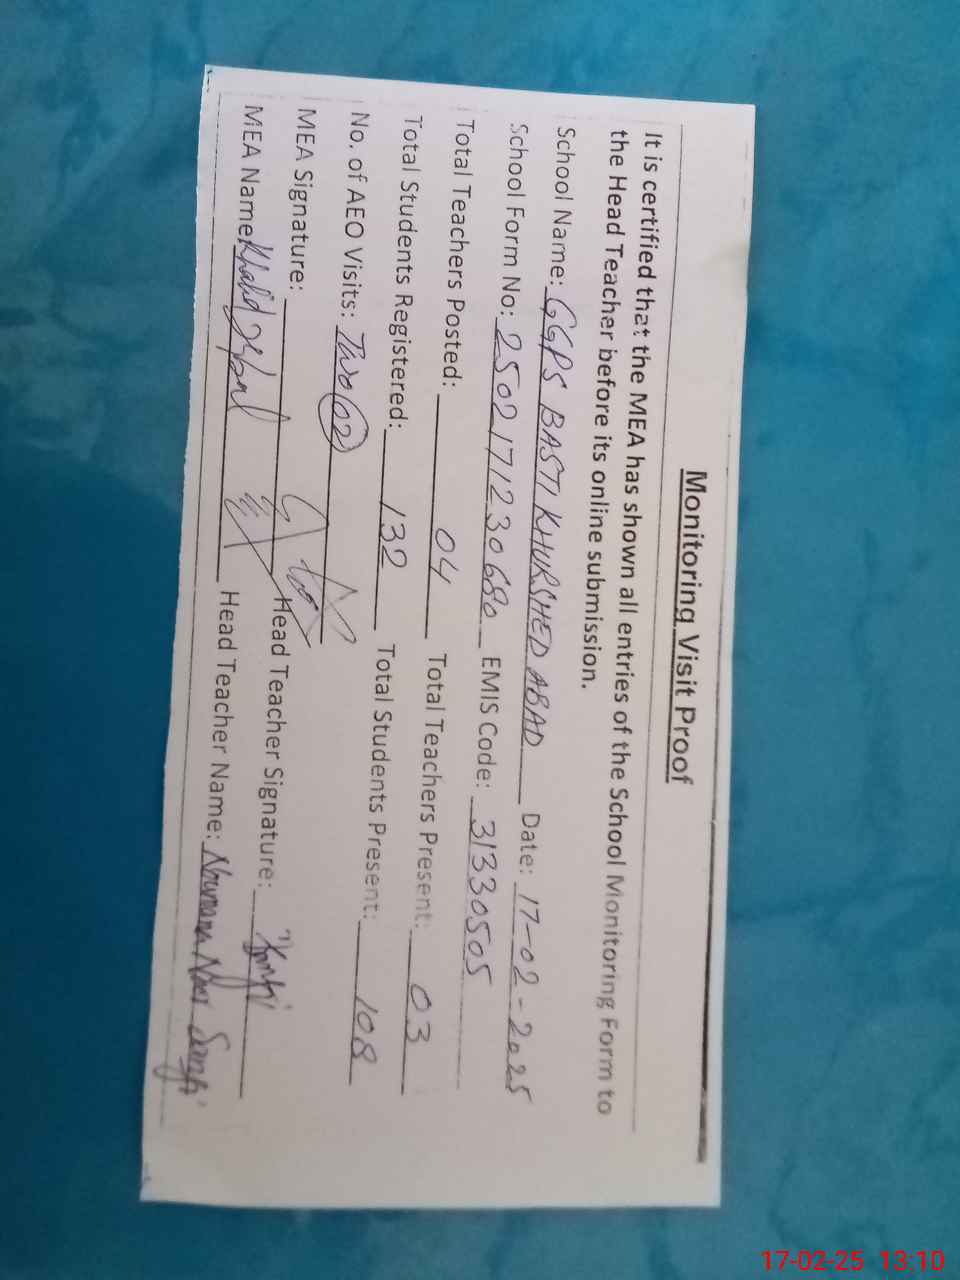 Monitoring Visit Proof
It is certified that the MEA has shown all entries of the School Monitoring Form to
the Head Teacher before its online submission.
School Name: GGPS BASTI KHURSHED ABAD Date: 17-02-2025
School Form No: 2502171230680 EMIS Code: 31330505
Total Teachers Posted: 04 Total Teachers Present: 03
Total Students Registered: 132 Total Students Present: 108
No. of AEO Visits: Two (02)
MEA Signature: Head Teacher Signature:
MEA Name: Khalid Iqbal Head Teacher Name:
17-02-25 13:10